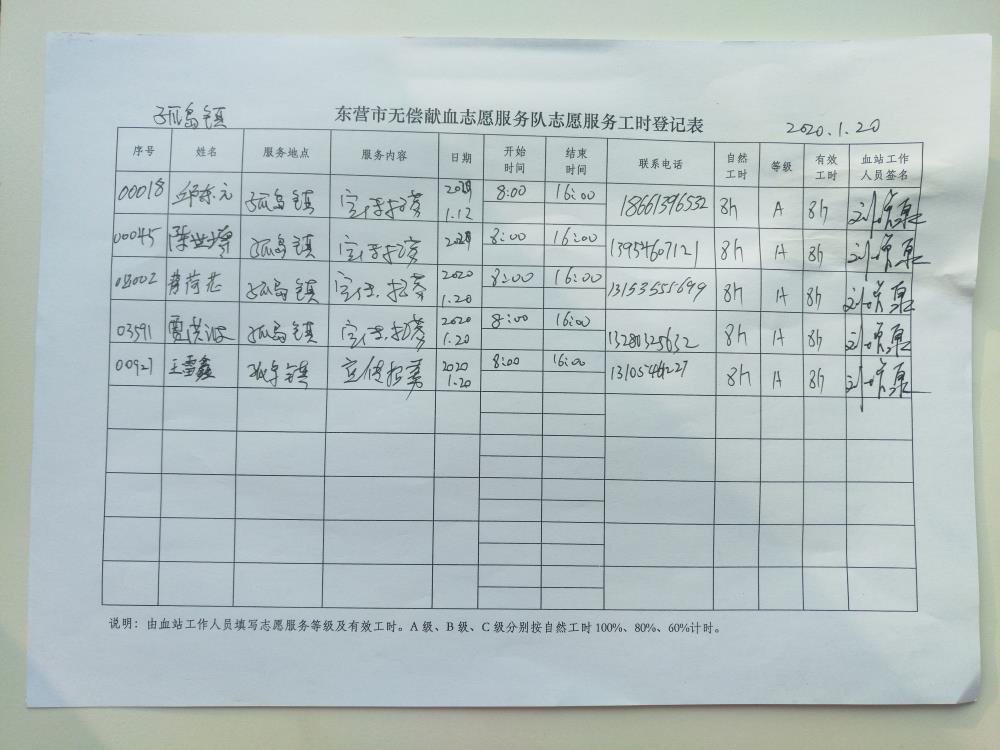 孤岛镇 东营市无偿献血志愿服务队志愿服务工时登记表 2020.1.20
序号 姓名 服务地点 服务内容 日期 开始时间 结束时间 联系电话 自然工时 等级 有效工时 血站工作人员签名
00018 孤岛镇 宣传招募 1.12 8:00 16:00 18661396532 8h A 8h
00045 孤岛镇 宣传招募 8:00 16:00 13954607121 8h A 8h
孤岛镇 宣传.招募 2020 1.20 8:00 16:00 8h A 8h
03591 孤岛镇 宣传.招募 2020 1.20 8:00 16:00 13280325632 8h A 8h
00927 王雪鑫 孤岛镇 宣传招募 2020 1.20 8:00 16:00 8h A 8h
说明：由血站工作人员填写志愿服务等级及有效工时。A 级、B 级、C 级分别按自然工时 100%、80%、60%计时。